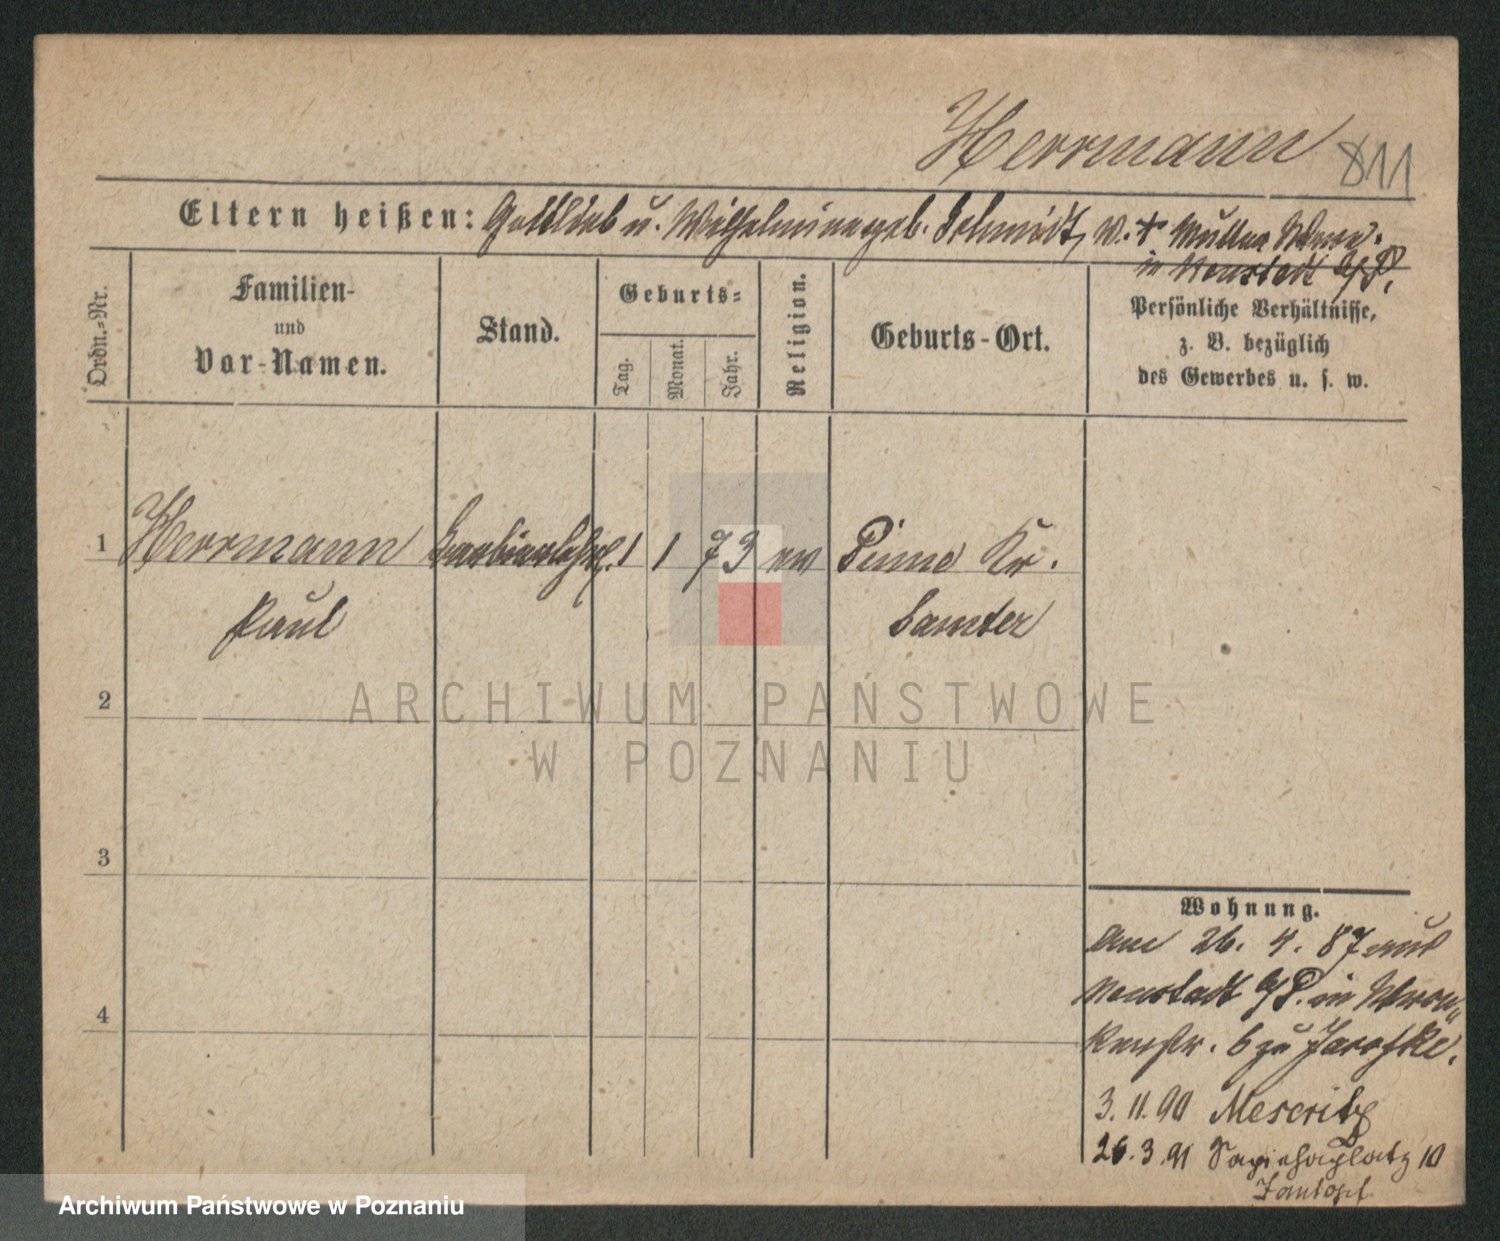 Herrmann 811
Eltern heißen: Gottlieb u. Wilhelmine geb. Schmidt, V. + Mutter Wwe.
in Neustadt a/P.
Ordn.-Nr.
Familien-
und
Vor-Namen.
Stand.
Geburts-
Tag.
Monat.
Jahr.
Religion.
Geburts-Ort.
Persönliche Verhältnisse,
z. B. bezüglich
des Gewerbes u. s. w.
1 Herrmann Barbierlehrl. 1 1 73 ev Pinne Kr.
Paul Samter
2
ARCHIWUM PAŃSTWOWE
W POZNANIU
3
4
Wohnung.
Am 26. 4. 87 aus
Neustadt a/P. in Wron-
kerstr. 6 zu Jaroske.
3.11.90 Meseritz
26.3.91 Sapiehaplatz 10
Archiwum Państwowe w Poznaniu